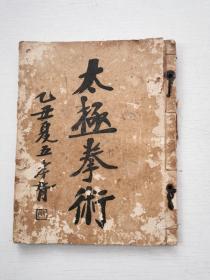 太極拳術
乙丑夏五